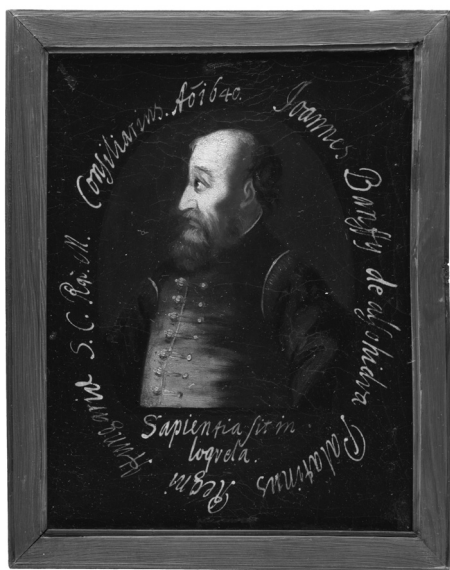 Joannes Banffy de Palatinus Regni Hungariæ S. C. Ræ. M. Consiliarius. Aō 1640.
Sapientia sit in
loqvela.